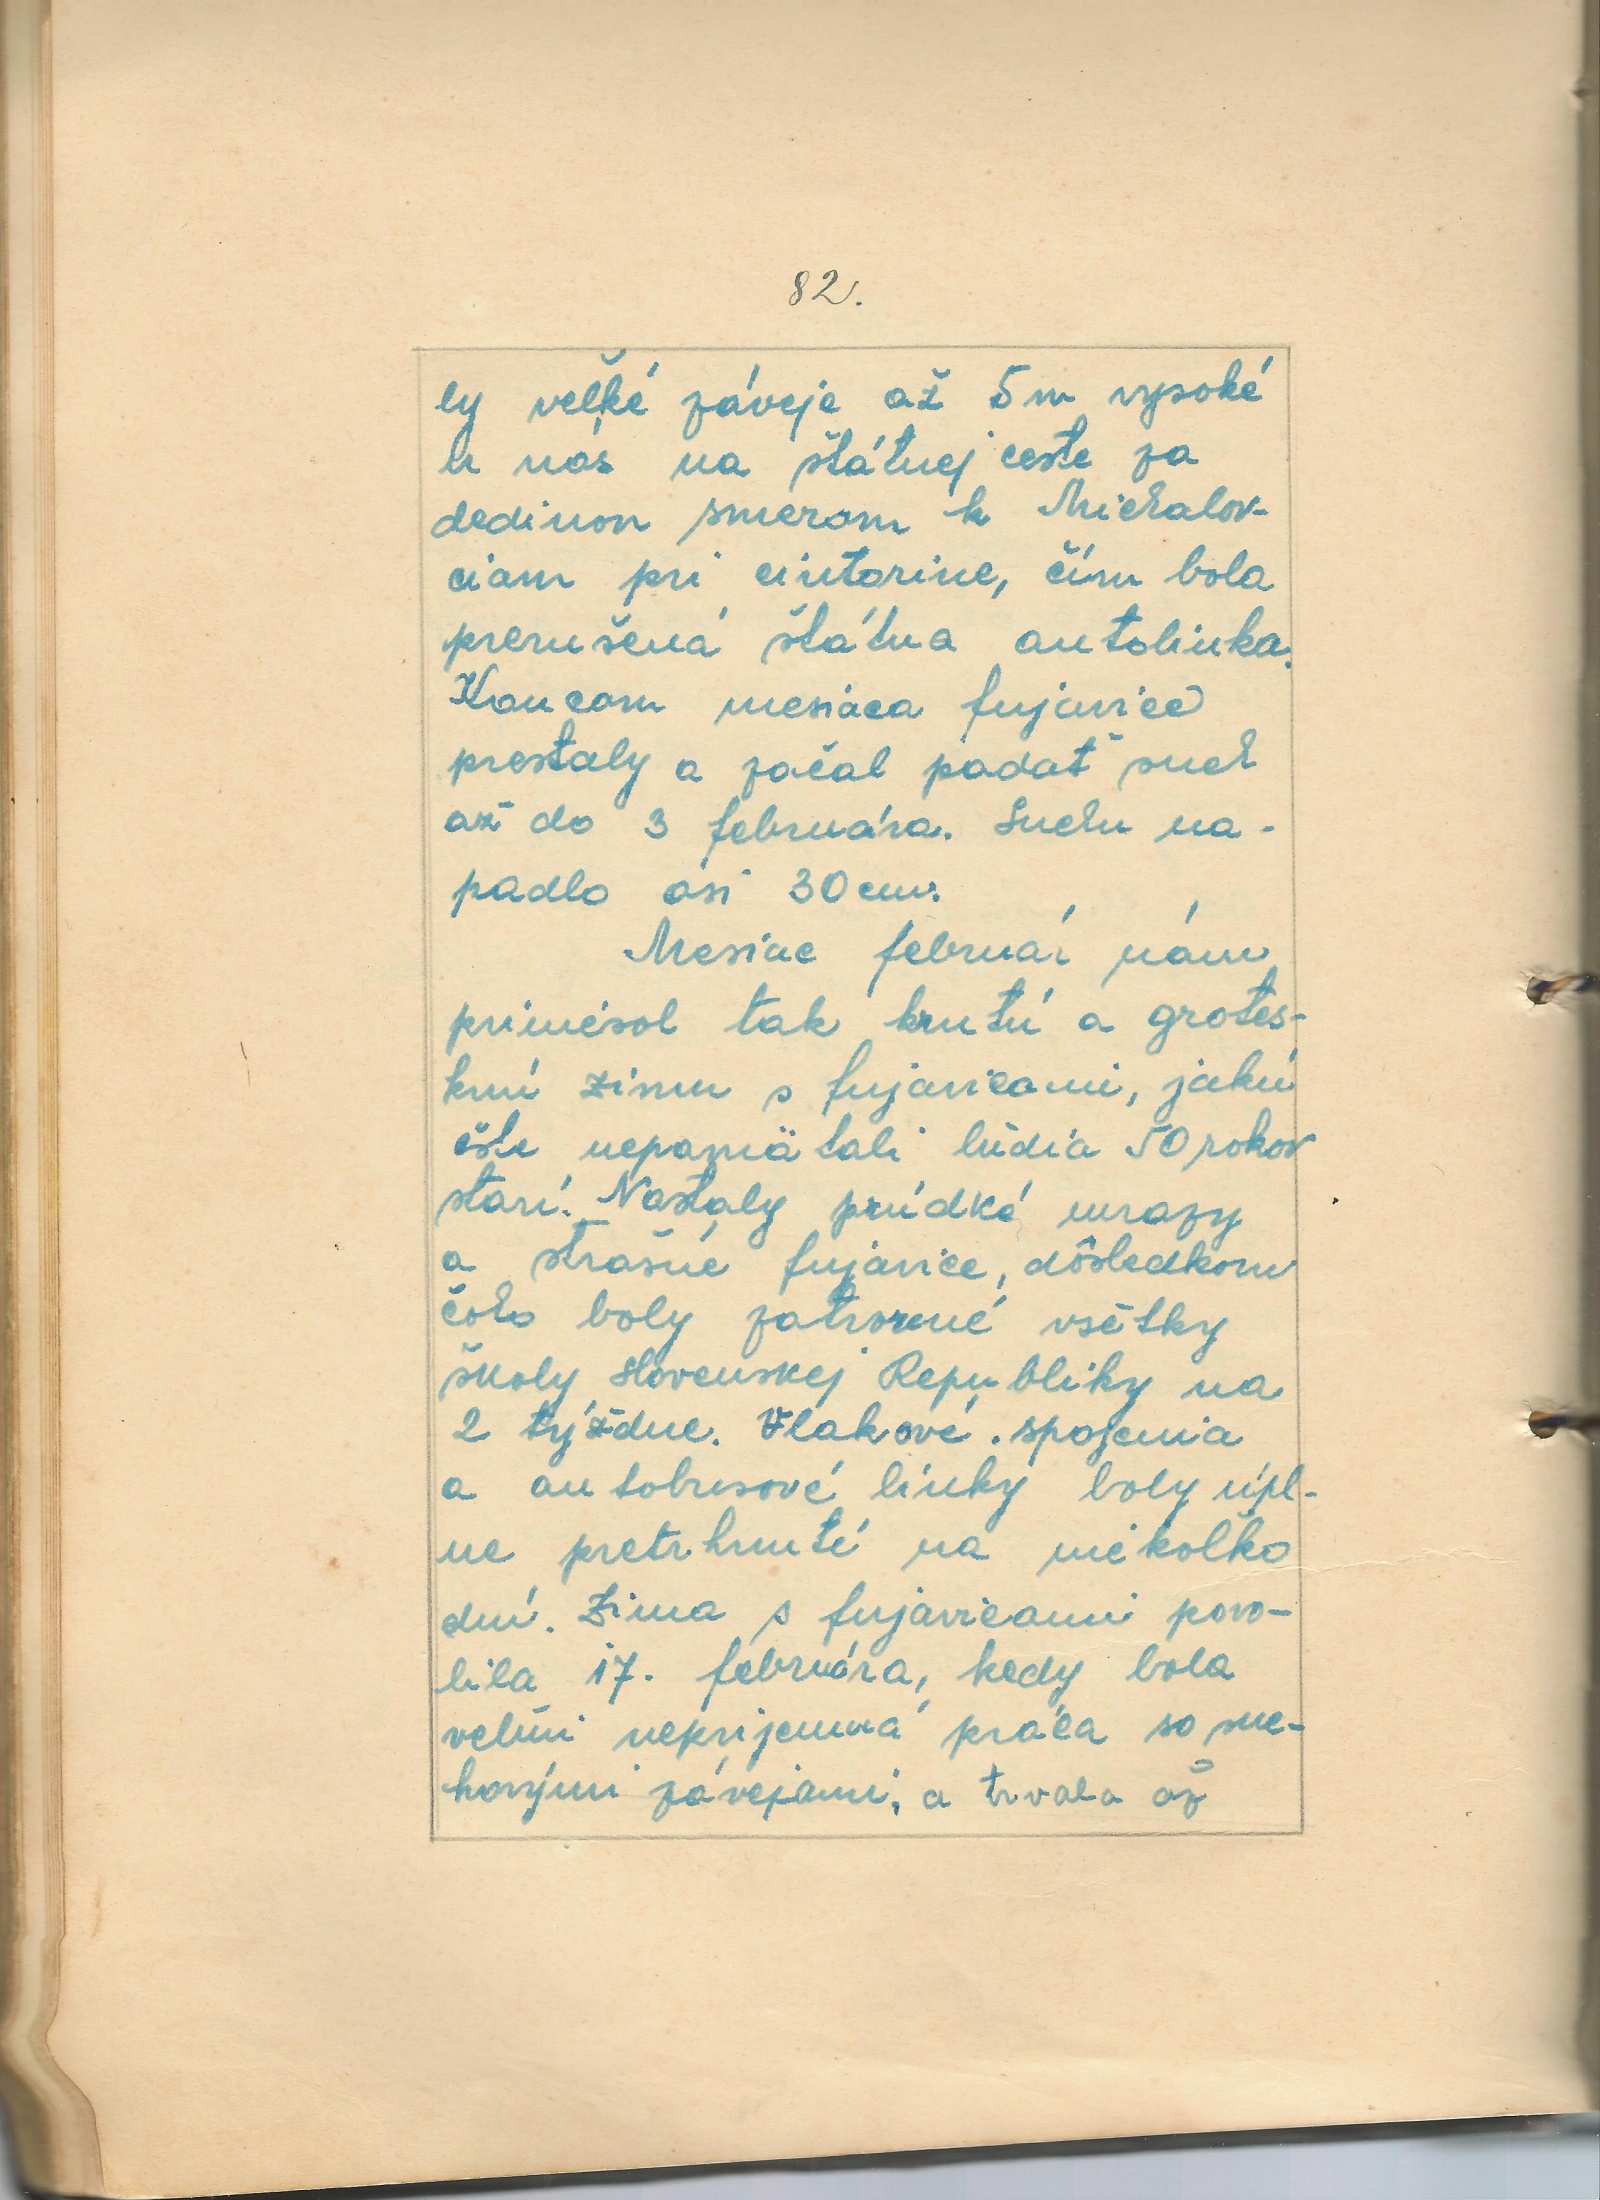 82.
ly veľké záveje až 5 m vysoké
u nás na štátnej ceste za
dedinou smerom k Michalov-
ciam pri cintoríne, čím bola
prerušená štátna autolinka.
Koncom mesiaca fujavice
prestaly a začal padať sneh
až do 3 februára. Snehu na-
padlo asi 30 cm.
Mesiac február nám
priniesol tak krutú a grotes-
knú zimu s fujavicami, jakú
ešte nepamätali ľúdia 50 rokov
starí. Nastaly prúdké mrazy
a strašné fujavice, dôsledkom
čoho boly zatvorené všetky
školy Slovenskej Republiky na
2 týždne. Vlakové spojenia
a autobusové linky boly úpl-
ne pretrhnuté na niekoľko
dní. Zima s fujavicami povo-
lila 17. februára, kedy bola
veľmi neprijemná práca so sne-
hovými závejami, a trvala až